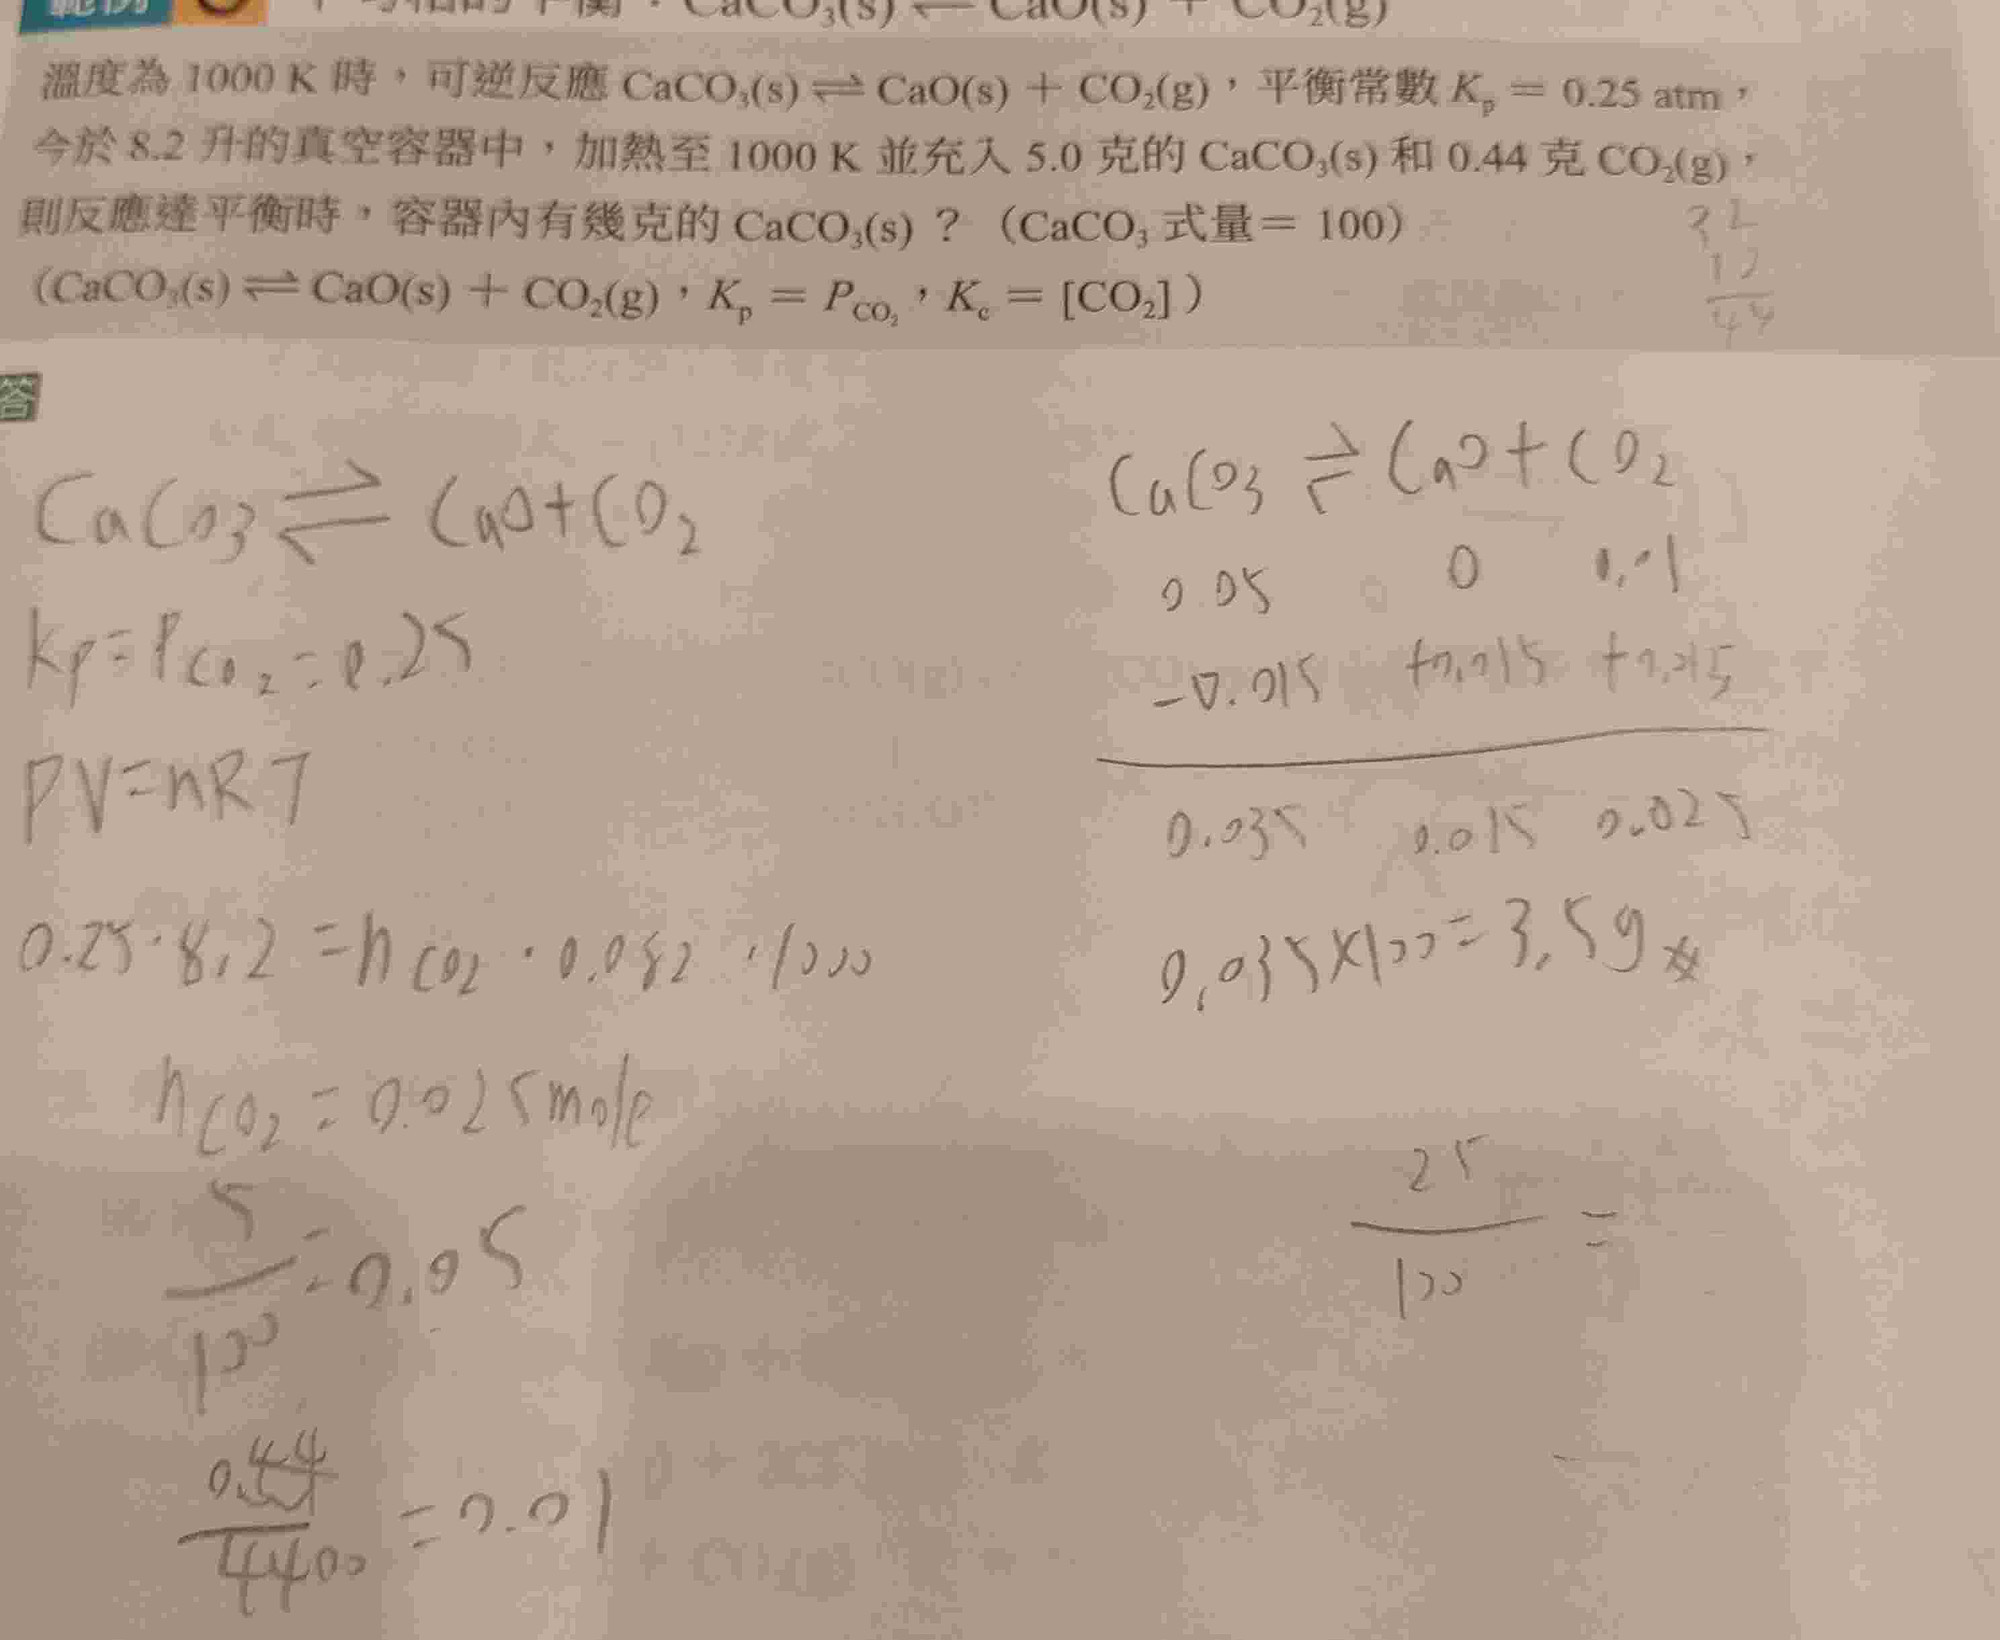 範例
平衡：CaCO₃(s) ⇌ CaO(s) + CO₂(g)
溫度為 1000 K 時，可逆反應 CaCO₃(s) ⇌ CaO(s) + CO₂(g)，平衡常數 Kp = 0.25 atm，
今於 8.2 升的真空容器中，加熱至 1000 K 並充入 5.0 克的 CaCO₃(s) 和 0.44 克 CO₂(g)，
則反應達平衡時，容器內有幾克的 CaCO₃(s)？（CaCO₃ 式量 = 100）
（CaCO₃(s) ⇌ CaO(s) + CO₂(g)，Kp = PCO₂，Kc = [CO₂]）
32
12
44
答
CaCO3 ⇌ CaO+CO2
Kp=PCO2=0.25
PV=nRT
0.25·8.2=nCO2·0.082·1000
nCO2=0.025mole
5/100=0.05
0.44/4400=0.01
CaCO3 ⇌ CaO+CO2
0.05 0 0.01
-0.015 +0.015 +0.015
0.035 0.015 0.025
0.035×100=3.5g
25/100=